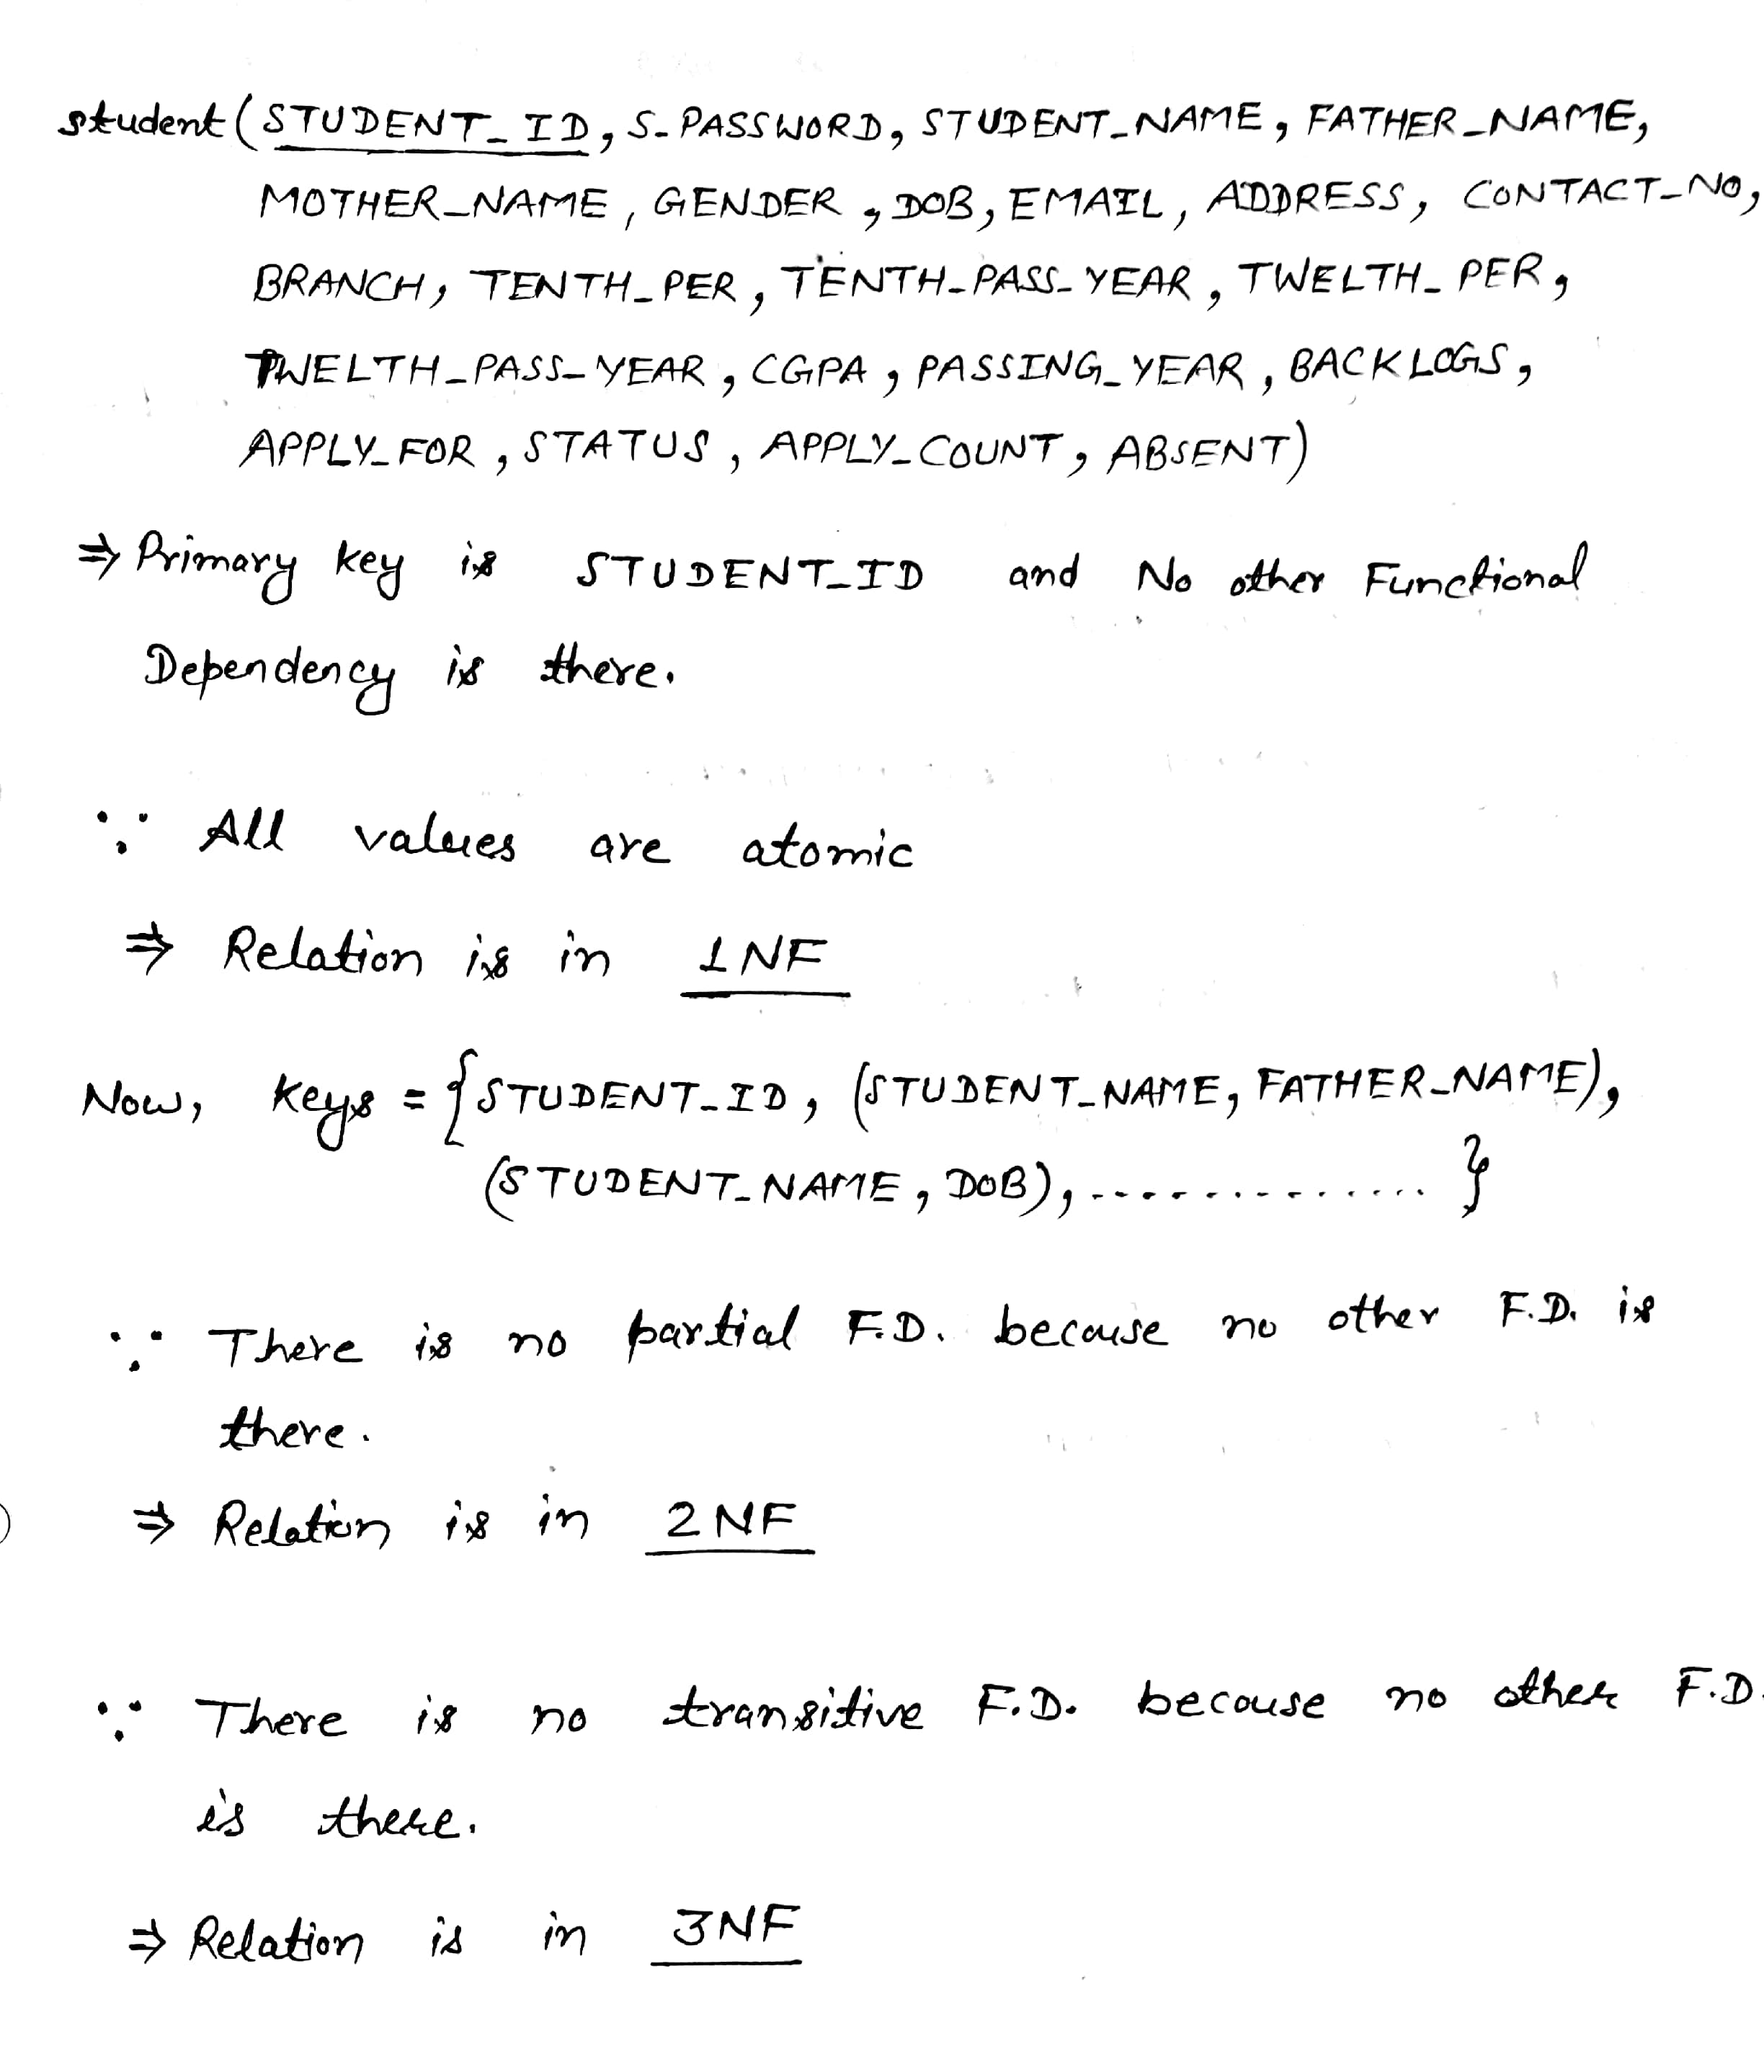 student (STUDENT_ID, S_PASSWORD, STUDENT_NAME, FATHER_NAME,
MOTHER_NAME, GENDER, DOB, EMAIL, ADDRESS, CONTACT_NO,
BRANCH, TENTH_PER, TENTH_PASS_YEAR, TWELTH_PER,
TWELTH_PASS_YEAR, CGPA, PASSING_YEAR, BACKLOGS,
APPLY_FOR, STATUS, APPLY_COUNT, ABSENT)
⇒ Primary key is STUDENT_ID and No other Functional
Dependency is there.
∵ All values are atomic
⇒ Relation is in 1NF
Now, keys = {STUDENT_ID, (STUDENT_NAME, FATHER_NAME),
(STUDENT_NAME, DOB), .............. }
∵ There is no partial F.D. because no other F.D. is
there.
⇒ Relation is in 2NF
∵ There is no transitive F.D. because no other F.D.
is there.
⇒ Relation is in 3NF